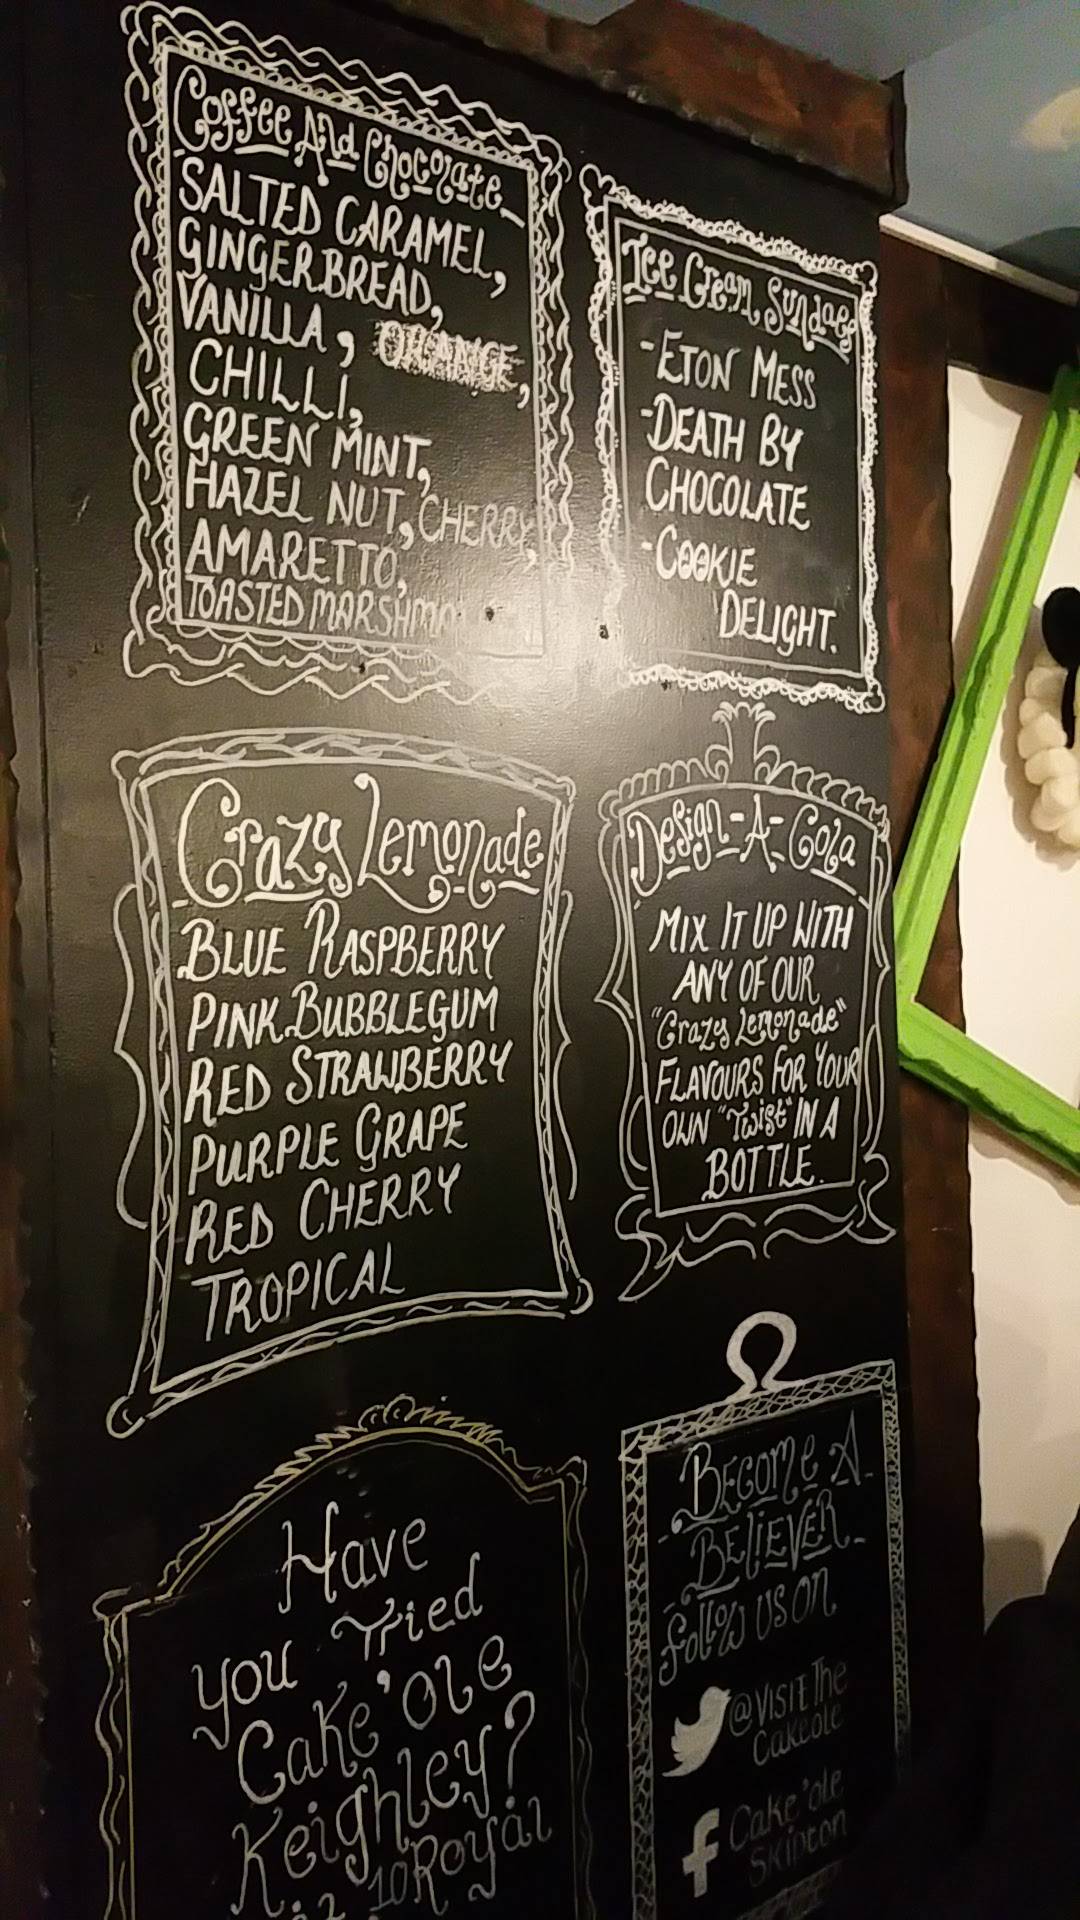 Coffee And Chocolate
SALTED CARAMEL,
GINGERBREAD,
VANILLA, ORANGE,
CHILLI,
GREEN MINT,
HAZEL NUT, CHERRY,
AMARETTO,
TOASTED
Ice Cream Sundaes
-ETON MESS
-DEATH BY
CHOCOLATE
-COOKIE
DELIGHT.
Crazy Lemonade
BLUE RASPBERRY
PINK BUBBLEGUM
RED STRAWBERRY
PURPLE GRAPE
RED CHERRY
TROPICAL
Design-A-Cola
MIX IT UP WITH
ANY OF OUR
"Crazy Lemonade"
FLAVOURS FOR YOUR
OWN "Twist" IN A
BOTTLE.
Have
you Tried
Cake'ole
Keighley?
10 Royal
BECOME A
BELIEVER
follow us on
@VISITThe
Cakeole
f Cake'ole
Skipton